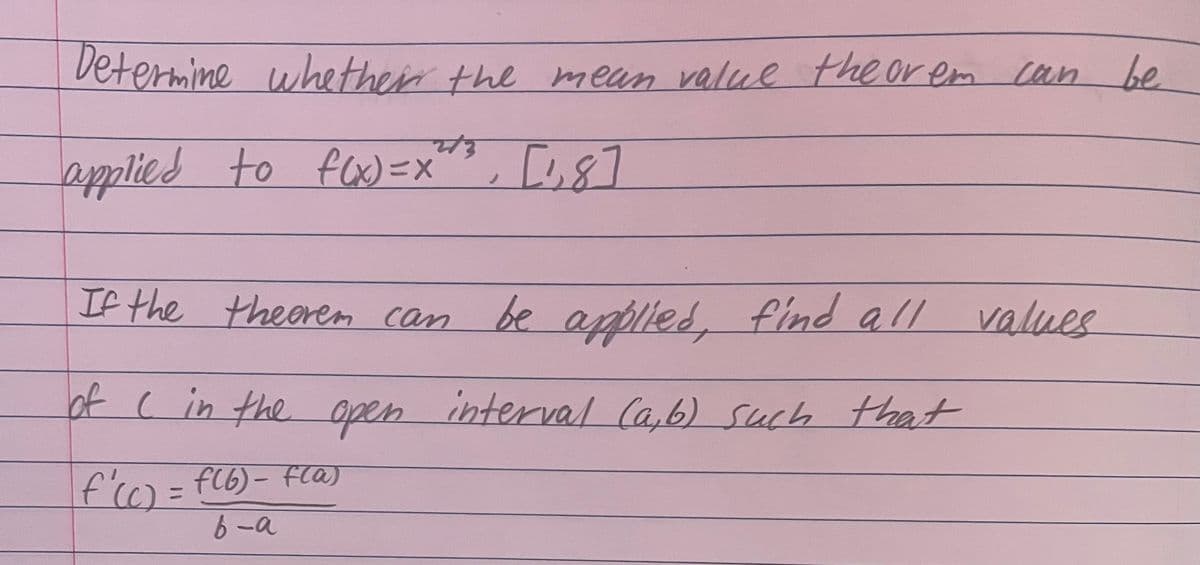 Determine whether the mean value theorem can be
applied to f(x)=x^2/3, [1,8]
If the theorem can be applied, find all values
of c in the open interval (a,b) such that
f'(c) = f(b) - f(a)
b-a